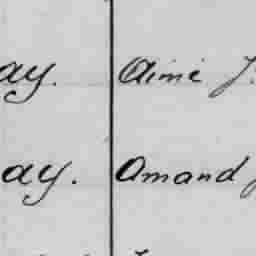 ay. Aimé J.
ay. Amand J